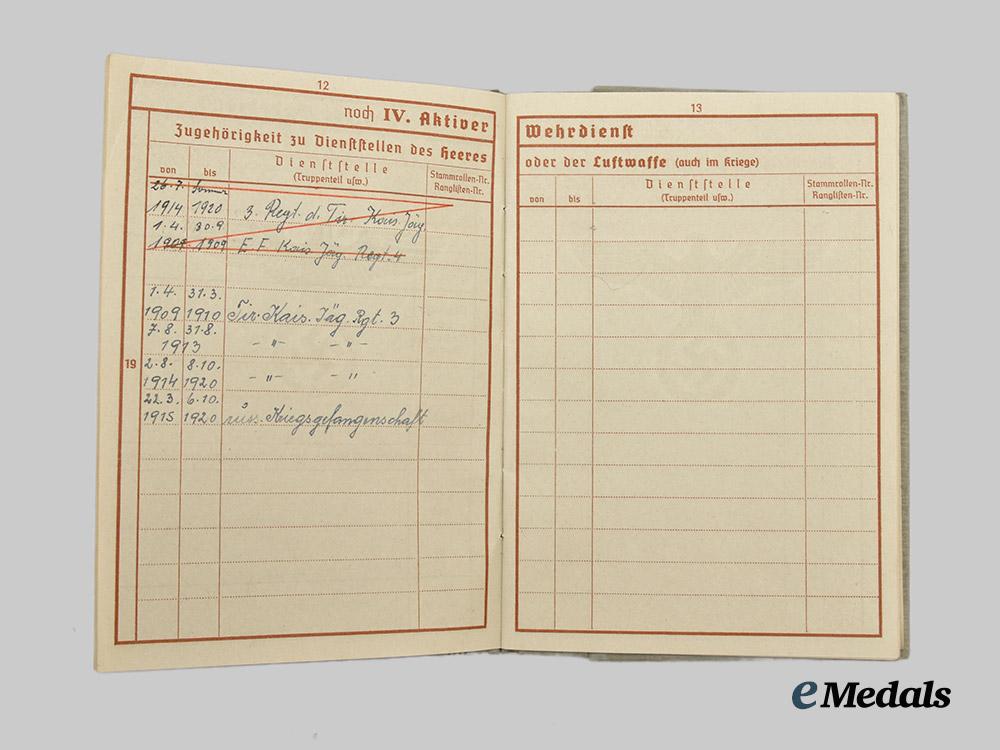 12
noch IV. Aktiver
Zugehörigkeit zu Dienststellen des Heeres
von bis Dienststelle (Truppenteil usw.) Stammrollen-Nr. Ranglisten-Nr.
26.7. Sommer
1914 1920 3. Regt. d. Tir. Kais. Jäg.
1.4. 30.9
1908 1909 E. F. Kais. Jäg. Regt. 4
1.4. 31.3.
1909 1910 Tir. Kais. Jäg. Rgt. 3
7.8. 31.8.
1913 - " - - " -
19 2.8. 8.10.
1914 1920 - " - - "
22.3. 6.10.
1915 1920 russ. Kriegsgefangenschaft
13
Wehrdienst
oder der Luftwaffe (auch im Kriege)
von bis Dienststelle (Truppenteil usw.) Stammrollen-Nr. Ranglisten-Nr.
eMedals